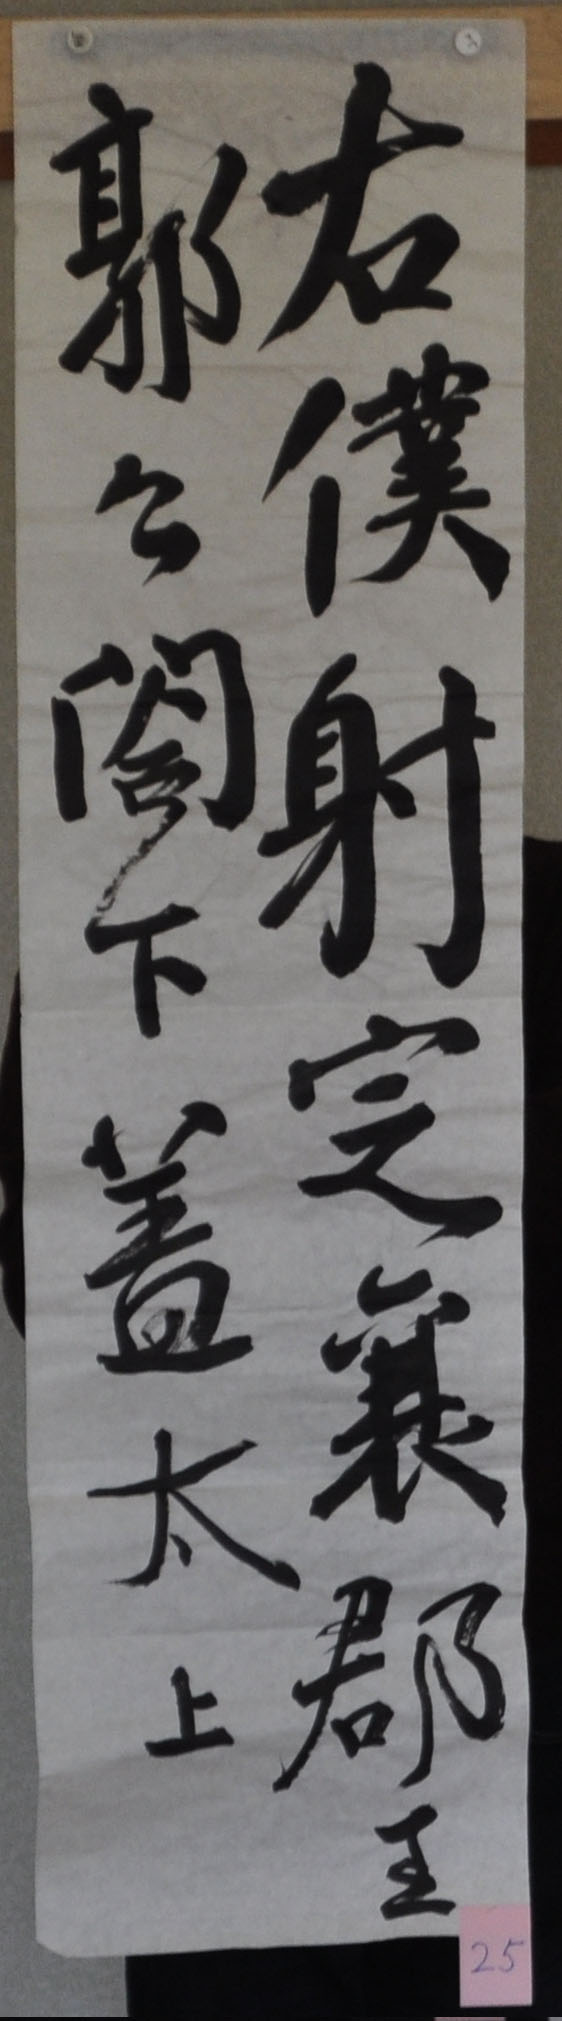 右僕射定襄郡王
郭公閤下蓋太上
25